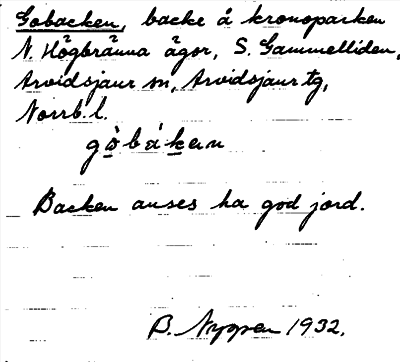 Gobacken, backe å kronoparken
N Högbränna ägor, S. Gammelliden,
Arvidsjaur sn, Arvidsjaur tg,
Norrb. l.
gòbákan
Backen anses ha god jord.
B. Nyppen 1932.